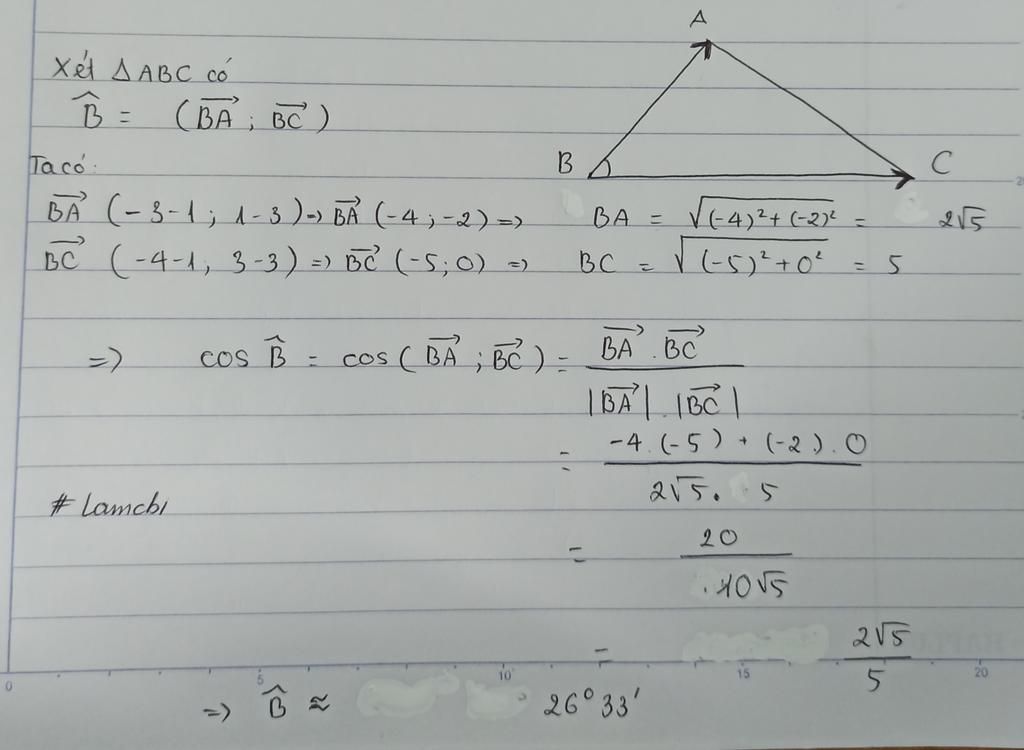 A
Xét ΔABC có
B̂ = (BA→ ; BC→)
B C
Ta có:
BA→ (-3-1; 1-3) => BA→ (-4; -2) => BA = √((-4)²+(-2)²) = 2√5
BC→ (-4-1, 3-3) => BC→ (-5; 0) => BC = √((-5)²+0²) = 5
=> cos B̂ = cos(BA→ ; BC→) = BA→ . BC→ / |BA→| . |BC→|
= -4.(-5) + (-2).0 / 2√5. 5
# lamcbi
= 20 / .10√5
= 2√5 / 5
=> B̂ ≈ 26°33'
0 5 10 15 20